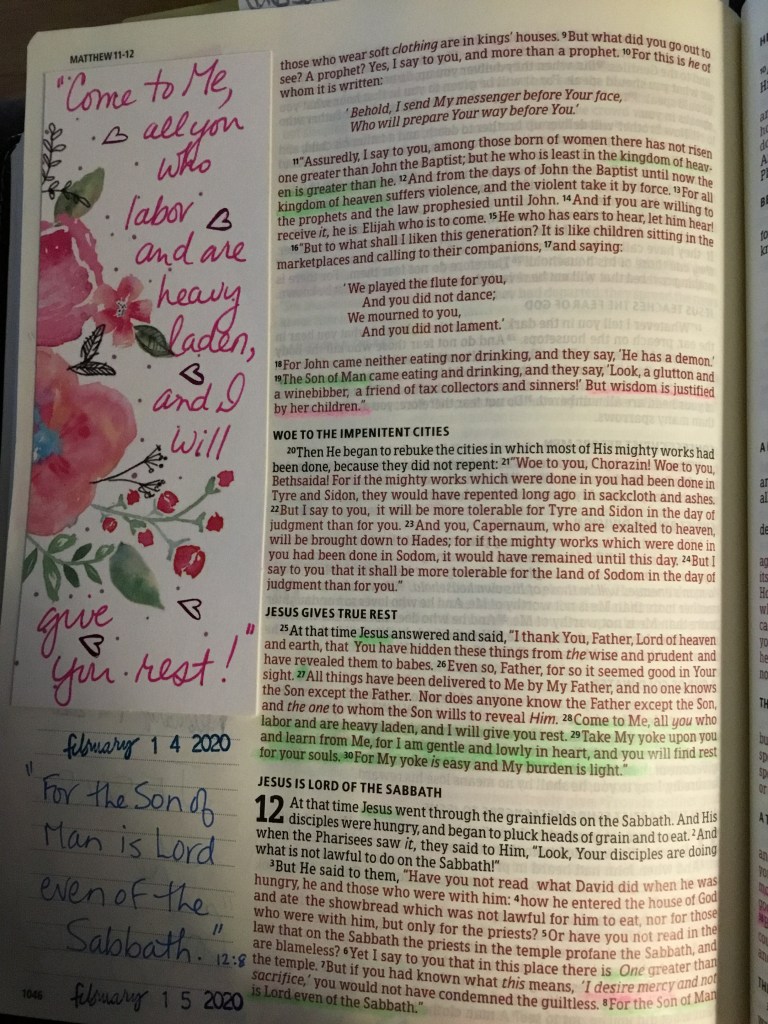 MATTHEW 11-12
"Come to Me,
all you
who
labor
and are
heavy
laden,
and I
will
give
you rest!"
february 14 2020
"For the Son of
Man is Lord
even of the
Sabbath."
12:8
1046
february 15 2020
those who wear soft clothing are in kings' houses. 9But what did you go out to
see? A prophet? Yes, I say to you, and more than a prophet. 10For this is he of
whom it is written:
'Behold, I send My messenger before Your face,
Who will prepare Your way before You.'
11"Assuredly, I say to you, among those born of women there has not risen
one greater than John the Baptist; but he who is least in the kingdom of heav-
en is greater than he. 12And from the days of John the Baptist until now the
kingdom of heaven suffers violence, and the violent take it by force. 13For all
the prophets and the law prophesied until John. 14And if you are willing to
receive it, he is Elijah who is to come. 15He who has ears to hear, let him hear!
16"But to what shall I liken this generation? It is like children sitting in the
marketplaces and calling to their companions, 17and saying:
'We played the flute for you,
And you did not dance;
We mourned to you,
And you did not lament.'
18For John came neither eating nor drinking, and they say, 'He has a demon.'
19The Son of Man came eating and drinking, and they say, 'Look, a glutton and
a winebibber, a friend of tax collectors and sinners!' But wisdom is justified
by her children."
WOE TO THE IMPENITENT CITIES
20Then He began to rebuke the cities in which most of His mighty works had
been done, because they did not repent: 21"Woe to you, Chorazin! Woe to you,
Bethsaida! For if the mighty works which were done in you had been done in
Tyre and Sidon, they would have repented long ago in sackcloth and ashes.
22But I say to you, it will be more tolerable for Tyre and Sidon in the day of
judgment than for you. 23And you, Capernaum, who are exalted to heaven,
will be brought down to Hades; for if the mighty works which were done in
you had been done in Sodom, it would have remained until this day. 24But I
say to you that it shall be more tolerable for the land of Sodom in the day of
judgment than for you."
JESUS GIVES TRUE REST
25At that time Jesus answered and said, "I thank You, Father, Lord of heaven
and earth, that You have hidden these things from the wise and prudent and
have revealed them to babes. 26Even so, Father, for so it seemed good in Your
sight. 27All things have been delivered to Me by My Father, and no one knows
the Son except the Father. Nor does anyone know the Father except the Son,
and the one to whom the Son wills to reveal Him. 28Come to Me, all you who
labor and are heavy laden, and I will give you rest. 29Take My yoke upon you
and learn from Me, for I am gentle and lowly in heart, and you will find rest
for your souls. 30For My yoke is easy and My burden is light."
JESUS IS LORD OF THE SABBATH
12 At that time Jesus went through the grainfields on the Sabbath. And His
disciples were hungry, and began to pluck heads of grain and to eat. 2And
when the Pharisees saw it, they said to Him, "Look, Your disciples are doing
what is not lawful to do on the Sabbath!"
3But He said to them, "Have you not read what David did when he was
hungry, he and those who were with him: 4how he entered the house of God
and ate the showbread which was not lawful for him to eat, nor for those
who were with him, but only for the priests? 5Or have you not read in the
law that on the Sabbath the priests in the temple profane the Sabbath, and
are blameless? 6Yet I say to you that in this place there is One greater than
the temple. 7But if you had known what this means, 'I desire mercy and not
sacrifice,' you would not have condemned the guiltless. 8For the Son of Man
is Lord even of the Sabbath."